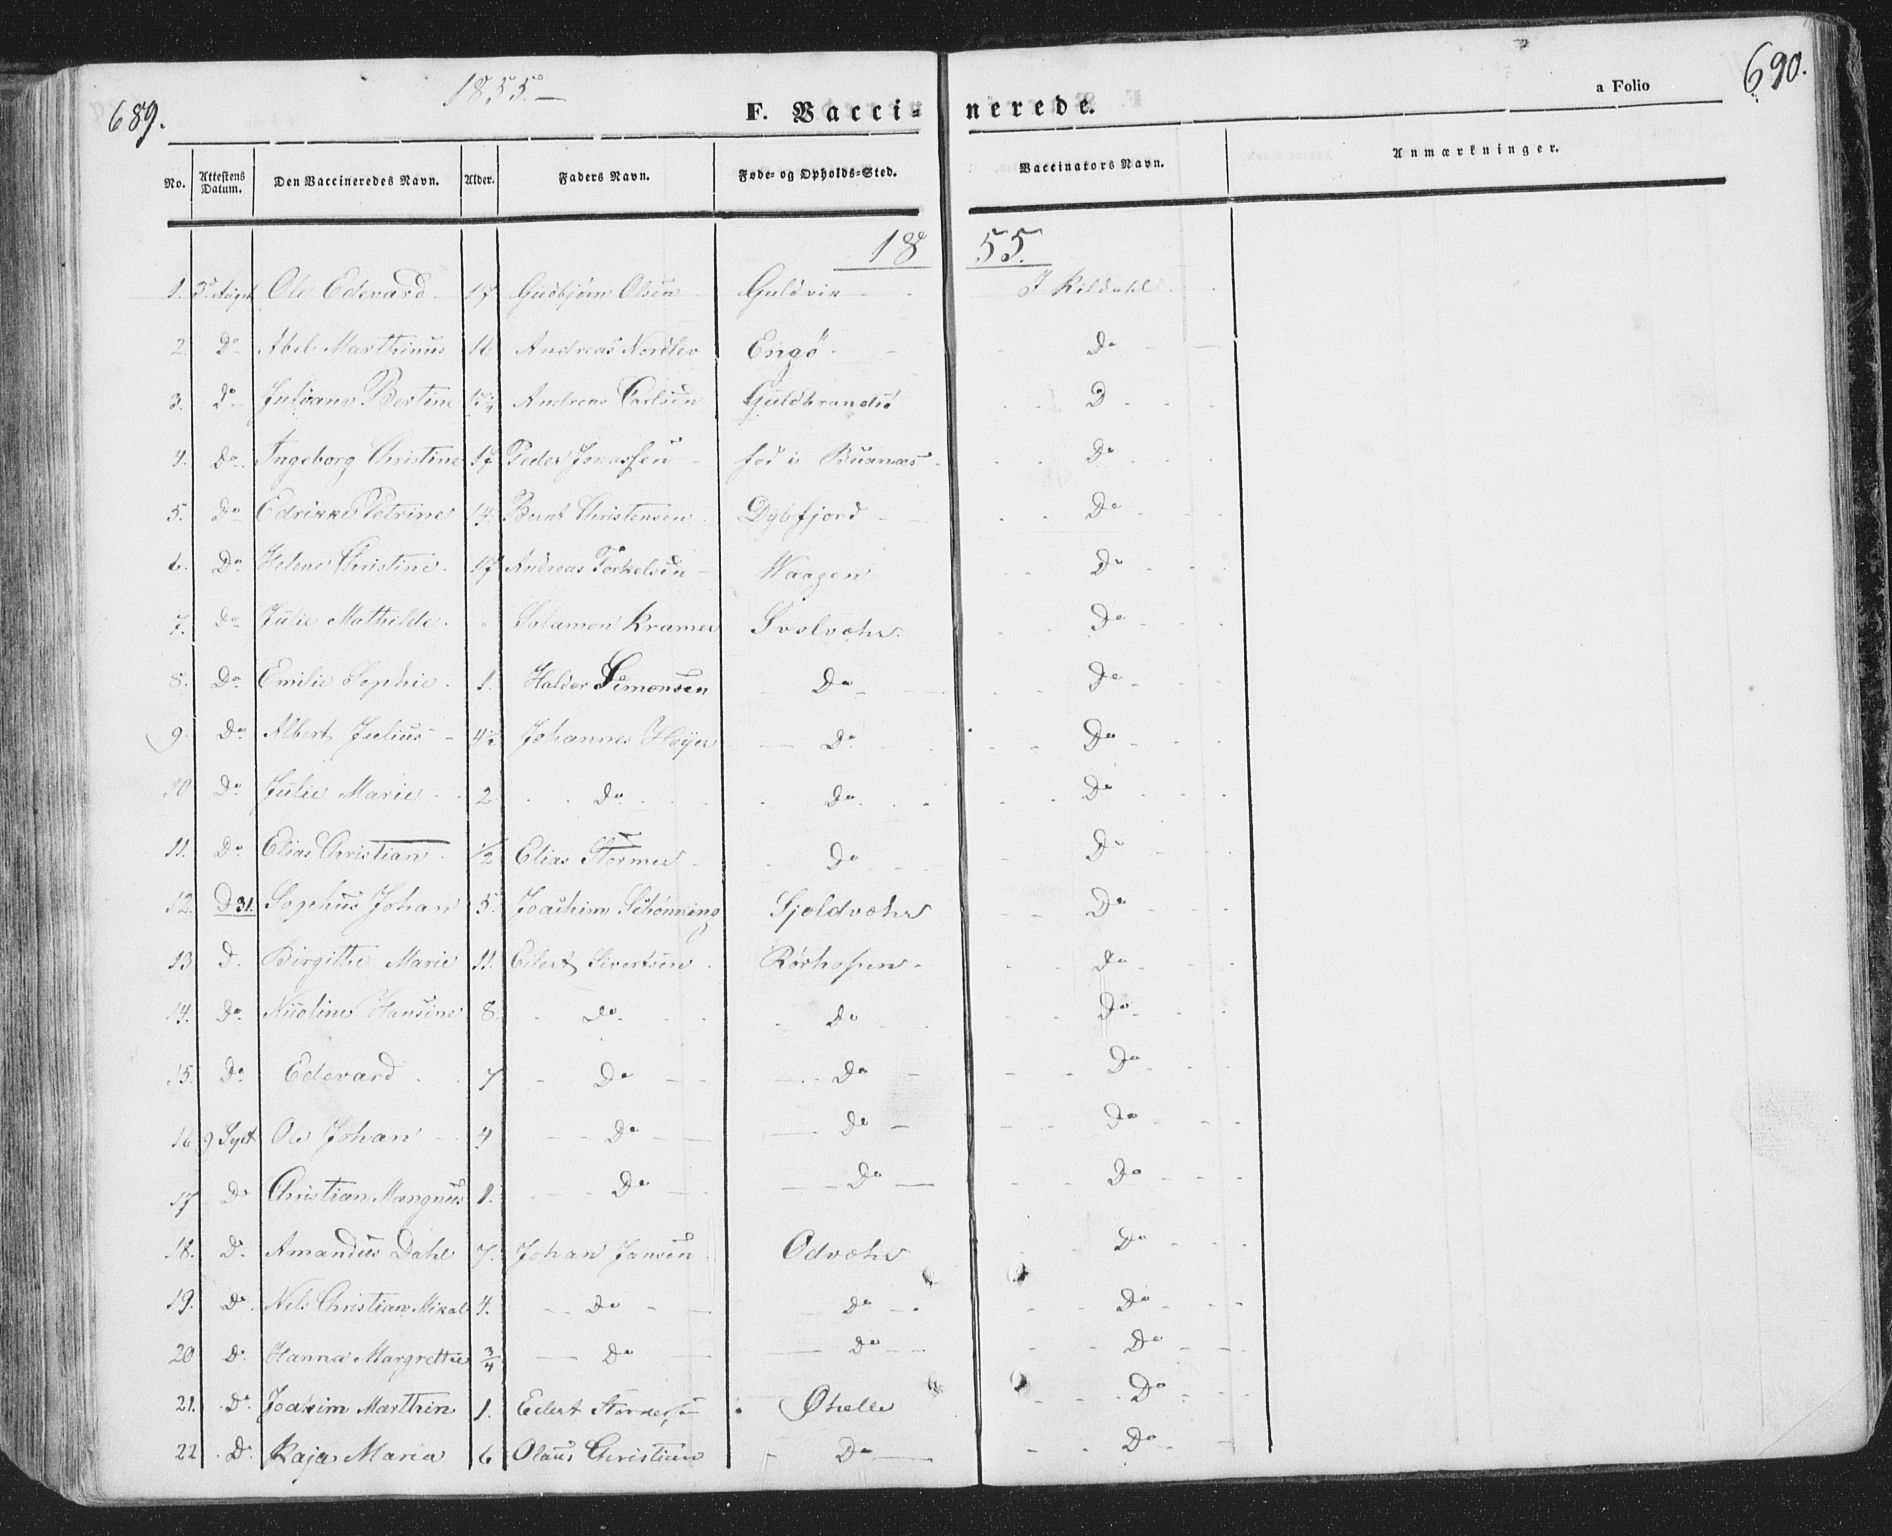 689. 1855.—
F. Vacci- nerede. a Folio 690.
No. Attestens Datum. Den Vaccineredes Navn. Alder. Faders Navn. Føde- og Opholds-Sted. Vaccinators Navn. Anmærkninger.
18 55.
1. Ole Edevard 17 Gudbjørn Olsen Guldvik J Kildahl
2. Do Abel Marthinus 16 Andreas Nordlev Engø Do
3. Do Juliane Bertine Andreas Carlsen Guldbrandsø D
4. Do Ingeborg Christine 17 Peder Jonassen fød i Buanæs Do
5. Do Edrikke Petrine 14. Bernt Christensen Dybfjord Do
6. Do Helene Christine 17 Andreas Torkelsen Waagen Do
7. Do Julie Mathilde " Salamon Kramer Svolvæhr Do
8. Do Emilie Sophie 1. Haldor Simonsen Do Do
9. Do Albert Julius 4½ Johannes Høyer Do Do
10 Do Julie Marie 2 Do Do Do
11. Do Elias Christian ½ Elias Stormer Do Do
12. D 31. Sophus Johan 5. Joachim Schønning Sjoldvæhr Do
13 D. Birgithe Marie 11. Eilert Sivertsen Rørhopen Do
14. Do Nicoline Hansine 8. Do Do Do
15. Do Edevard 7 Do Do Do
16 9 Sept Ole Johan 4 Do Do Do
17 Do Christian Mangnus 1. Do Do Do
18. D. Amandus Dahl 7. Johan Jansen Odvæhr Do
19. Do Nels Christian Mikal 4. Do Do Do
20 D. Hanna Margrethe 3/4 Do Do Do
21. D. Joakim Marthin 1. Eilert Øhelle Do
22 D. Kaja Maria 6 Olaus Christian Do Do